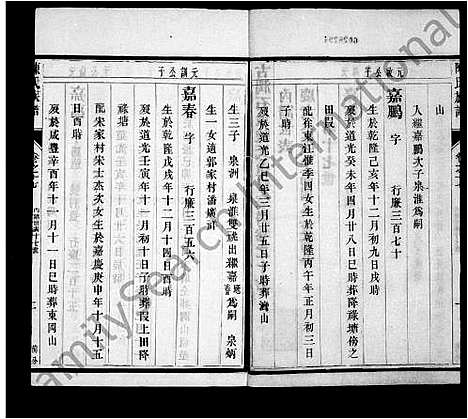 元徽公子
山
人繼嘉鵬次子泉淮爲嗣
嘉鵬 字 行廉三百七十
生於乾隆己亥年十一月初九日戌時
歿於道光癸未年四月廿八日巳時葬降祿塘傍之
田畈
配徐東江雅季四女生於乾隆丙午年正月初三日
時歿於道光乙巳年三月廿五日子時葬灣山
元訓公子
生三子 泉洲 泉淮雙祧出繼嘉鵬爲嗣 泉炳
生一女適郭家村潘廣
嘉春 字 行廉三百五六
生於乾隆戊戌年十二月十四日時
歿於道光壬寅年十一月初十日子時葬殿上田降
祿塘
配朱家村朱士杰次女生於嘉慶庚申年八月十五
日時歿於咸豐辛酉年十一月十一日巳時葬東岡山
陳氏族譜
卷之七
FamilySearch International